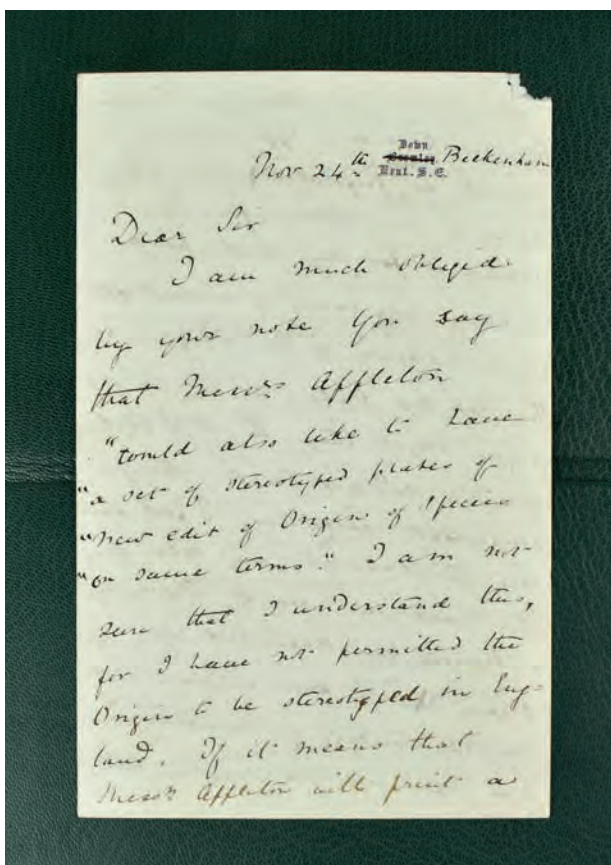 Down
Bromley
Kent. S.E.
Nov 24th Beckenham
Dear Sir
I am much obliged
by your note You say
that Messrs Appleton
"would also like to have
"a set of stereotyped plates of
"new edit of Origin of Species
"on same terms." I am not
sure that I understand this,
for I have not permitted the
Origin to be stereotyped in Eng-
land. If it means that
Messrs Appleton will print a